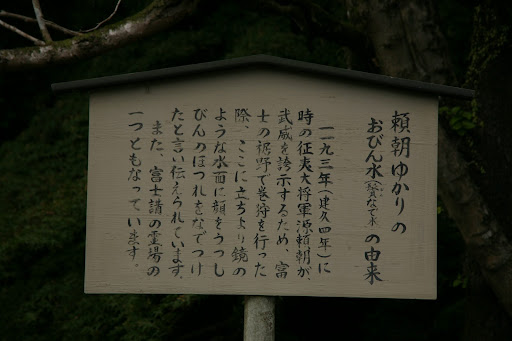 頼朝ゆかりの
おびん水(鬢なで水)の由来
一一九三年(建久四年)に
時の征夷大将軍源頼朝が、
武威を誇示するため、富
士の裾野で巻狩を行った
際、ここに立ちより鏡の
ような水面に顔をうつし
びんのほつれをなでつけ
たと言い伝えられています。
また、富士講の霊場の
一つともなっています。